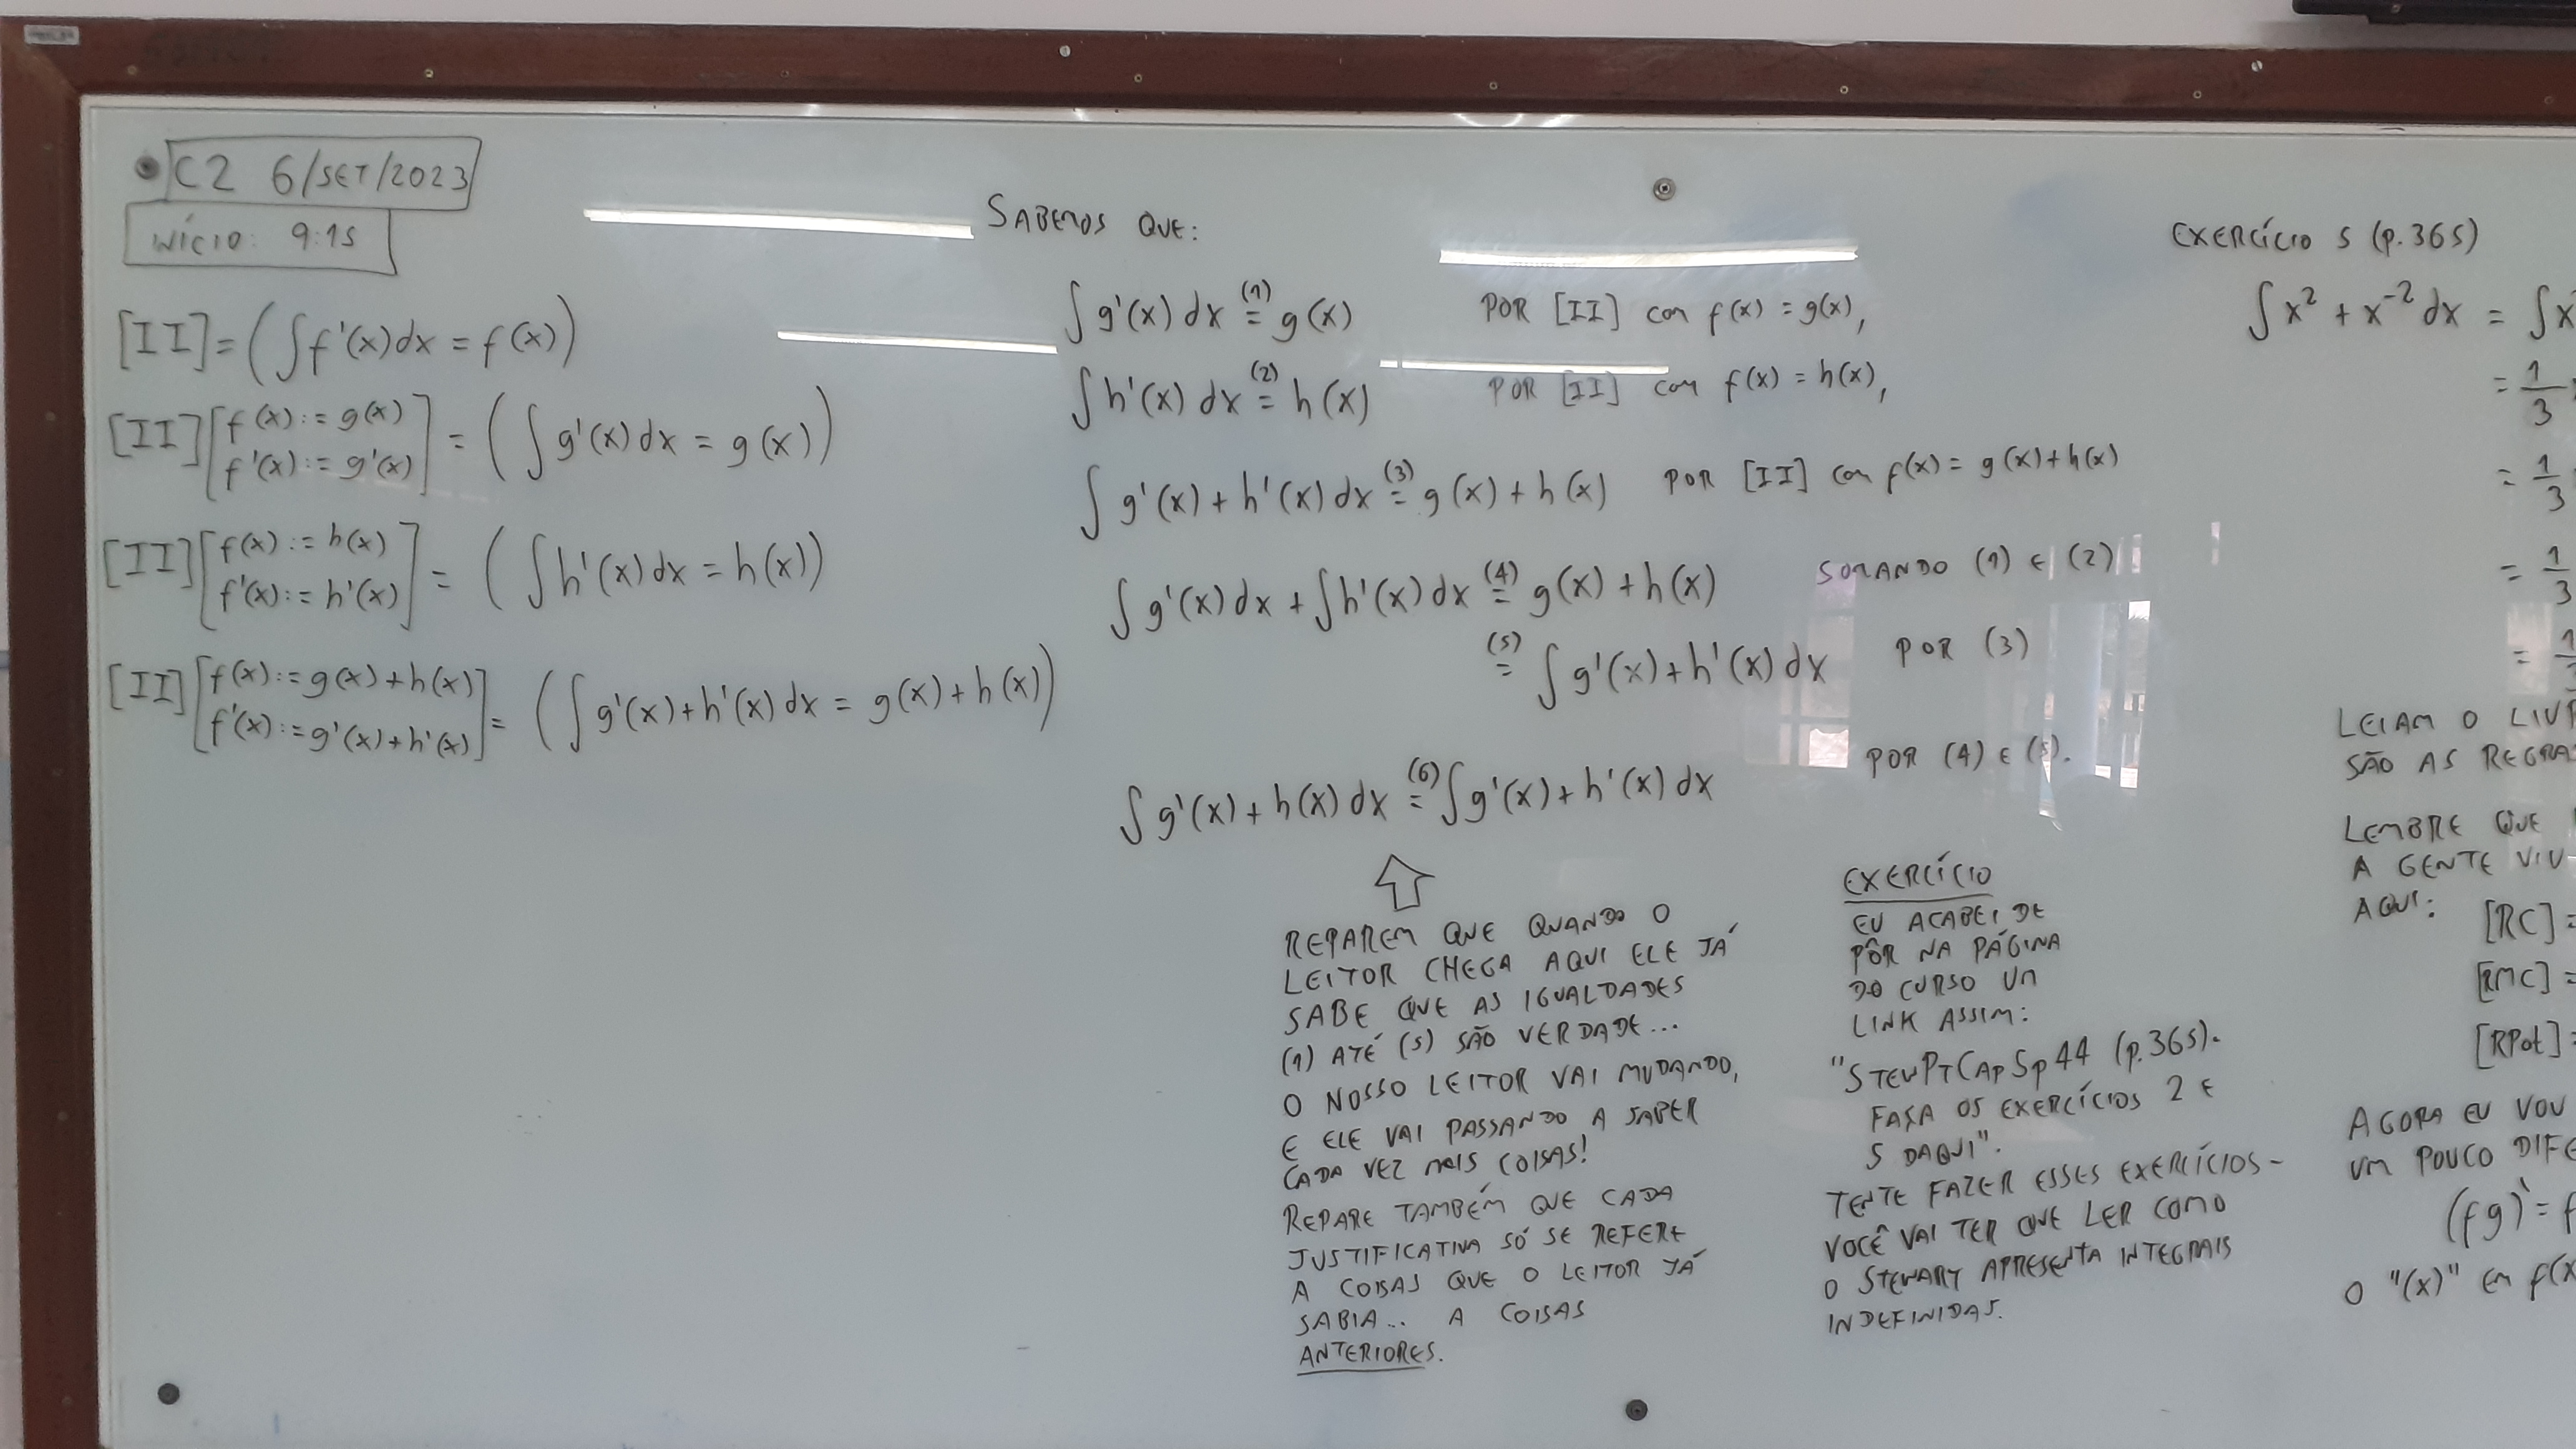 C2 6/SET/2023
INÍCIO: 9:15
[II] = (∫f'(x)dx = f(x))
[II][f(x) := g(x)
f'(x) := g'(x)] = (∫g'(x)dx = g(x))
[II][f(x) := h(x)
f'(x) := h'(x)] = (∫h'(x)dx = h(x))
[II][f(x) := g(x)+h(x)
f'(x) := g'(x)+h'(x)] = (∫g'(x)+h'(x)dx = g(x)+h(x))
SABEMOS QUE:
∫g'(x)dx (1)= g(x) POR [II] COM f(x) = g(x),
∫h'(x)dx (2)= h(x) POR [II] COM f(x) = h(x),
∫g'(x)+h'(x)dx (3)= g(x)+h(x) POR [II] COM f(x) = g(x)+h(x)
∫g'(x)dx + ∫h'(x)dx (4)= g(x)+h(x) SOMANDO (1) E (2)
(5)= ∫g'(x)+h'(x)dx POR (3)
∫g'(x)+h(x)dx (6)= ∫g'(x)+h'(x)dx POR (4) E (5).
REPAREM QUE QUANDO O
LEITOR CHEGA AQUI ELE JÁ
SABE QUE AS IGUALDADES
(1) ATÉ (5) SÃO VERDADE...
O NOSSO LEITOR VAI MUDANDO,
E ELE VAI PASSANDO A SABER
CADA VEZ MAIS COISAS!
REPARE TAMBÉM QUE CADA
JUSTIFICATIVA SÓ SE REFERE
A COISAS QUE O LEITOR JÁ
SABIA... A COISAS
ANTERIORES.
EXERCÍCIO
EU ACABEI DE
PÔR NA PÁGINA
DO CURSO UM
LINK ASSIM:
"STEWPTCAP5P44 (p.365).
FAÇA OS EXERCÍCIOS 2 E
5 DAQUI".
TENTE FAZER ESSES EXERCÍCIOS -
VOCÊ VAI TER QUE LER COMO
O STEWART APRESENTA INTEGRAIS
INDEFINIDAS.
EXERCÍCIO 5 (p.365)
∫x² + x⁻² dx = ∫x
= 1/3
= 1/3
= 1/3
=
LEIAM O LIV
SÃO AS REGRAS
LEMBRE QUE
A GENTE VIU
AQUI: [RC] =
[RMC] =
[RPot] =
AGORA EU VOU
UM POUCO DIFE
(fg)' = f
O "(x)" EM f(x